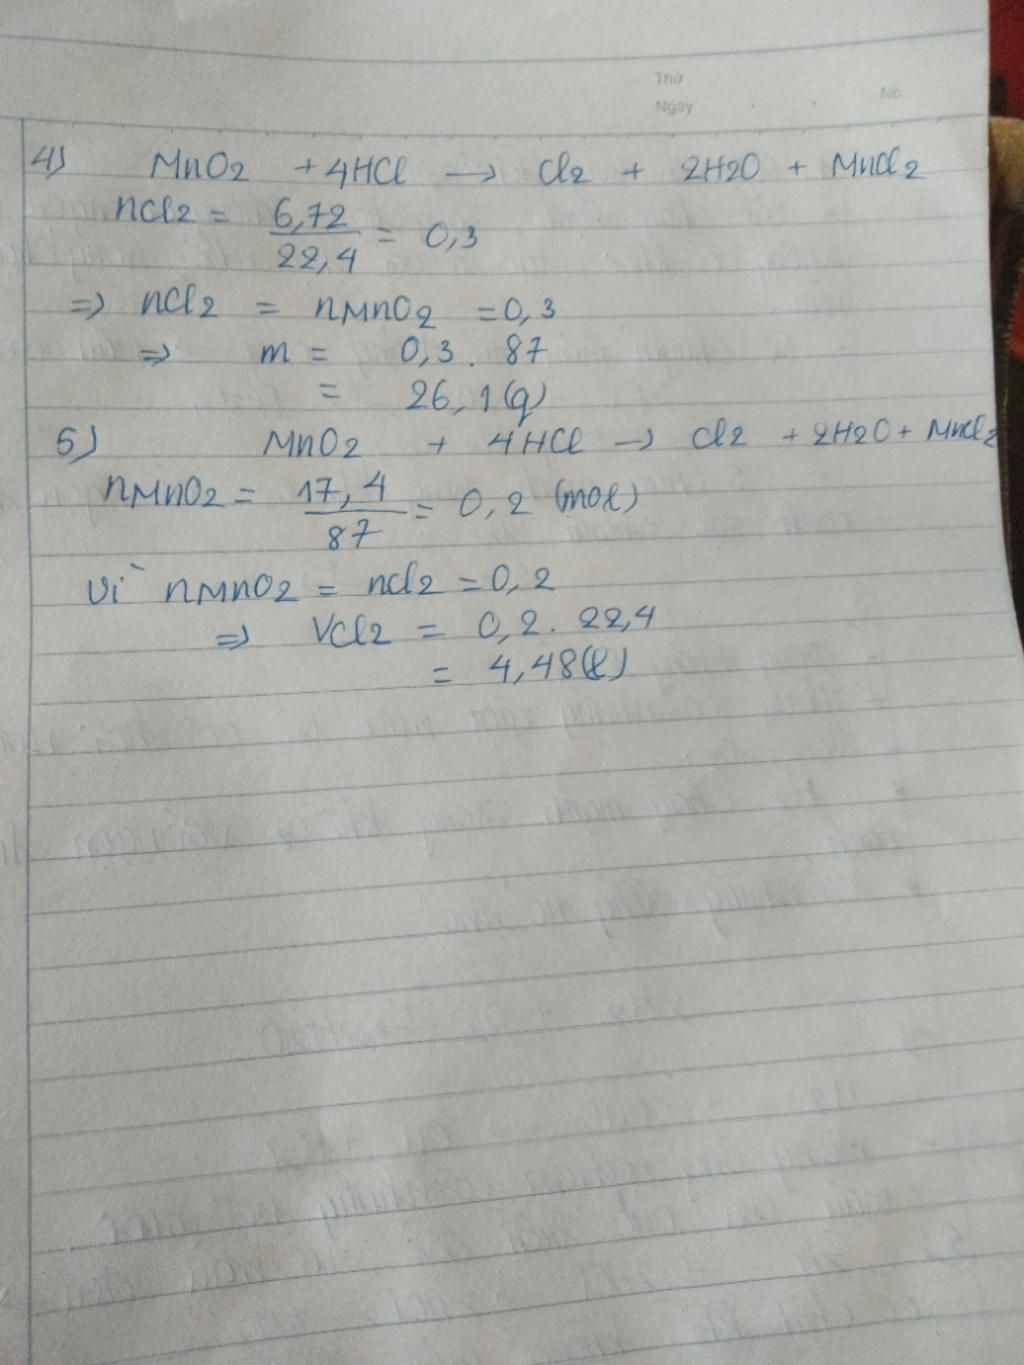 Thứ
Ngày
No.
4) MnO2 + 4HCl → Cl2 + 2H2O + MnCl2
nCl2 = 6,72 / 22,4 = 0,3
=> nCl2 = nMnO2 = 0,3
=> m = 0,3 . 87
= 26,1(g)
5) MnO2 + 4HCl → Cl2 + 2H2O + MnCl2
nMnO2 = 17,4 / 87 = 0,2 (mol)
Vì nMnO2 = nCl2 = 0,2
=> VCl2 = 0,2. 22,4
= 4,48(l)